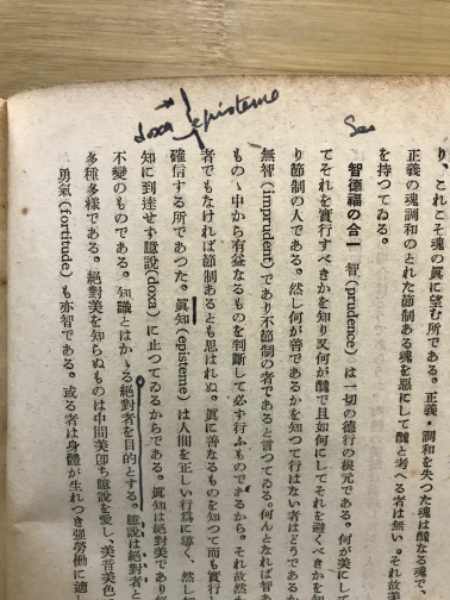 doxa
episteme
り、これこそ魂の眞に望む所である。正義・調和を失つた魂は醜なる魂で、
正義の魂調和のとれた節制ある魂を惡にして醜と考へる者は無い。それ故美
を持つてゐる。
智德福の合一 智(prudence)は一切の德行の根元である。何が美にして
てそれを實行すべきかを知り又何が醜で且如何にしてそれを避くべきかを知
り節制の人である。然し何が善であるかを知つて行はない者はどうであるか
無智(imprudent)であり不節制の者であると言つてゐる。何んとなれば智あ
ものゝ中から有益なるものを判斷して必ず行ふものであるから。それ故然
者でもなければ節制あるとも思はれぬ。眞に善なるものを知つて而も實行
確信する所であつた。眞知(episteme)は人間を正しい行爲に導く、然し
知に到達せず臆說(doxa)に止つてゐるからである。眞知は絕對美であり
不變のものである。知識とはかゝる絕對者を目的とする。臆說は絕對者と
多種多樣である。絕對美を知らぬものは中間美卽ち臆說を愛し、美音美色
勇氣(fortitude)も亦智である。或る者は身體が生れつき强勞働に適